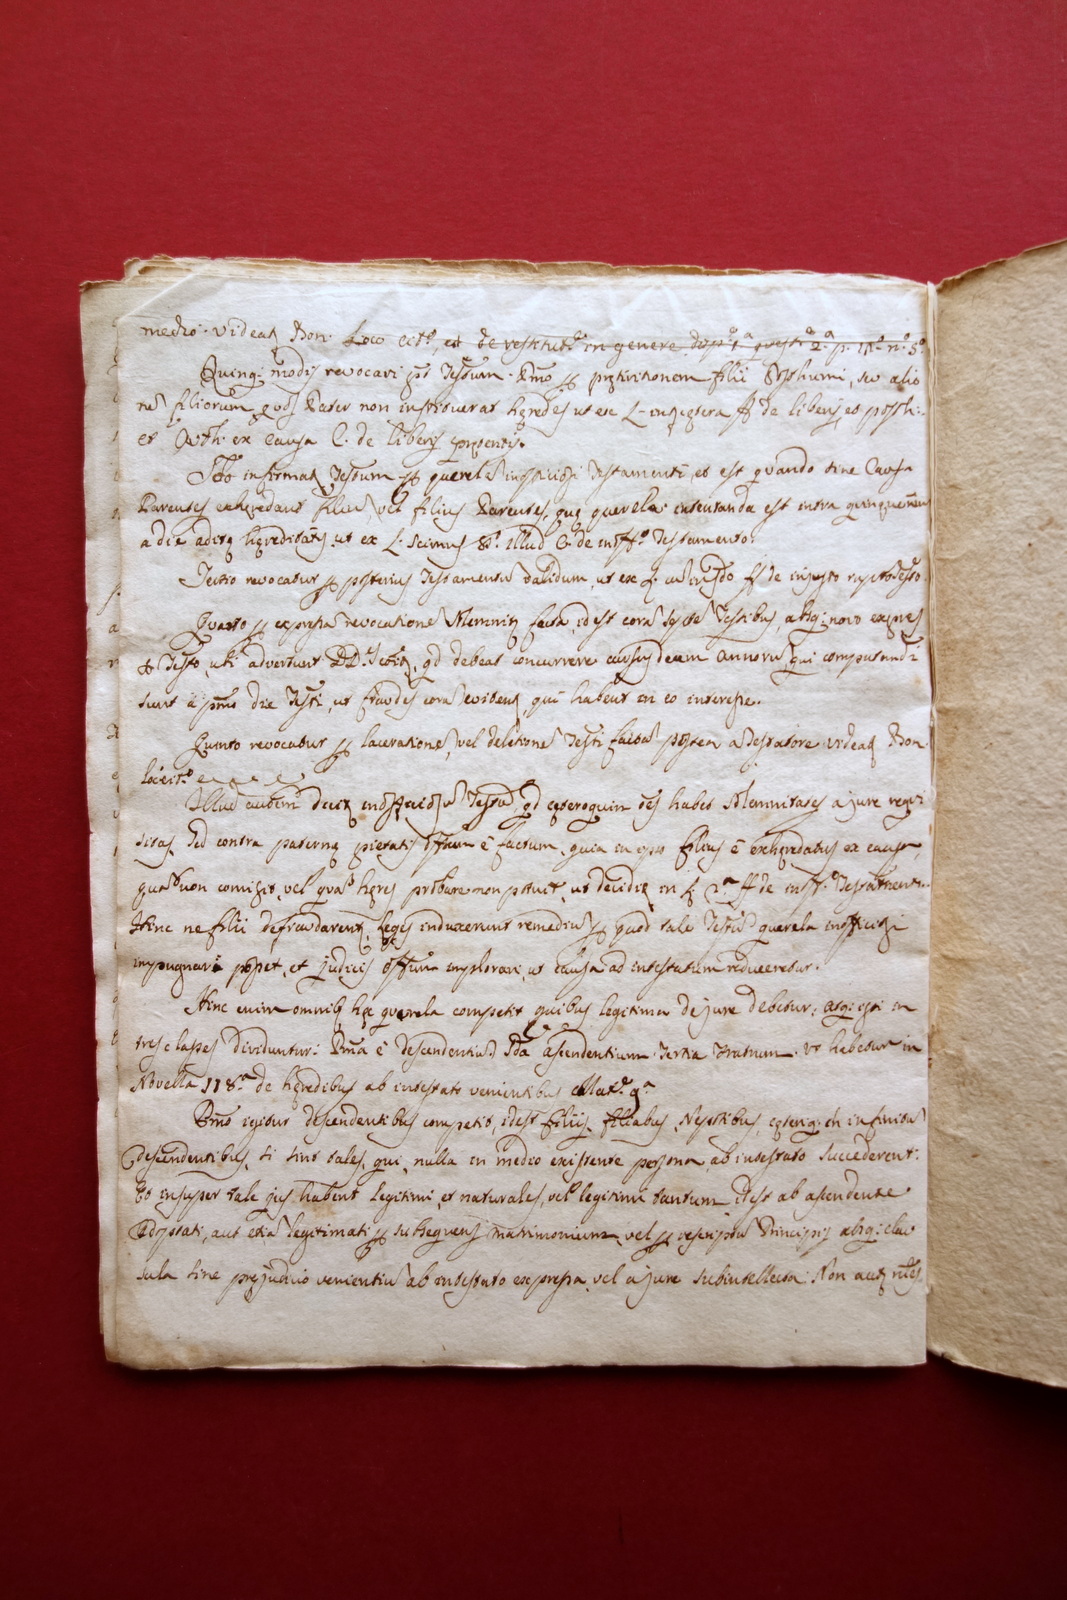 medio. videat Bon. Loco cit.º, et de restitut.e in genere disp.e 1.a quest. 2.a p. n.º 5º
Quinq; modis revocari p̃t Testum. Pmo p filii Posthumi, seu alio
rũ filiorum quos Pater non instituerat hęredes ut ex L. ff de liberis, et posth:
et Auth. ex causa C. de liberis
2do infirmat Testum p querelã inofficiosi Testamenti, et est quando sine Causa
Parentes exhęredant filiũ, vel filius Parentes, quę querela intentanda est intra quinqueniũ
a die aditę hęreditatis, ut ex L. scimus §. illud C. de inoff.º Testamento.
Tertio revocatur p posterius Testamentũ validum, ut ex ff de injusto rupto Testo.
Quarto p expressã revocationẽ solemniter factã, idest corã septẽ Testibus, absq; novo
Testo, uti advertunt DD. qd debeat concurrere cursus decem annorũ, qui computandi
sunt a pmo die Testi, ut fraudes qui habent in eo interesse.
Quinto revocatur p lacerationẽ, vel deletionẽ Testi factã postea a Testatore videat Bon.
loc. cit.º
Illud autem dicit inofficiosũ Testũ, qd cęteroquin oẽs habet solemnitates a jure requi
sitas, sed contra paternę pietatis offium ẽ factum, quia in eo filius ẽ exhęredatus ex causa,
quã non comisit, vel quã hęres probare non potuit, ut deciditur in L. 2.a ff de inoff. Testamento.
Hinc ne filii defraudarent, leges induxerunt remediũ, p quod tale Testũ querela inofficiosi
impugnari posset, et judicis offium implorari, ut causa ad intestatum reduceretur.
Hinc enim omnibq hęc querela competit quibus legitima de jure debetur: atq; isti in
tres classes dividuntur: Pma ẽ descendentiũ 2da ascendentium. Tertia Fratrum. ut habetur in
Novella 118.a de hęredibus ab intestato venientibus Collat.e 9.a
Pmo igitur descendentibus competit, idest filiis, filiabus, Nepotibus, cęterisq; in infinitũ
descendentibus, si sint tales, qui, nulla in medio existente persona, ab intestato succederent:
Et insuper tale jus habent legitimi, et naturales, vel legitimi tantum, idest ab ascendente
Adoptati, aut etiã legitimati p subsequens matrimonium, vel p rescriptũ Principis absq; clau
sula sine prejudicio venientiũ ab intestato expressa, vel a jure subintellecta: Non aut